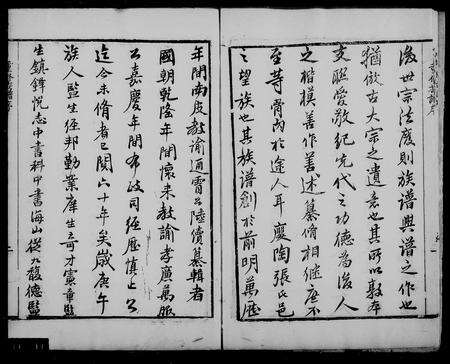 後世宗法廢則族譜興譜之作也
猶倣古大宗之遺意也其所以敦本
支聯愛敬紀先代之功德為後人
之楷模善作善述纂脩相繼庶不
至等骨肉於途人耳慶陶張氏邑
之望族也其族譜創於前明萬歷
年間南皮教諭通霄公陸續纂輯者
國朝乾隆年間懷来教諭孝廉萬脤
公嘉慶年間布政司經歷慎止公
迄今未脩者已閱六十年矣歲庚午
族人監生經邦勤業庠生奇才憲章監
生鎮鐸悅志中書科中書海山從九馥德監